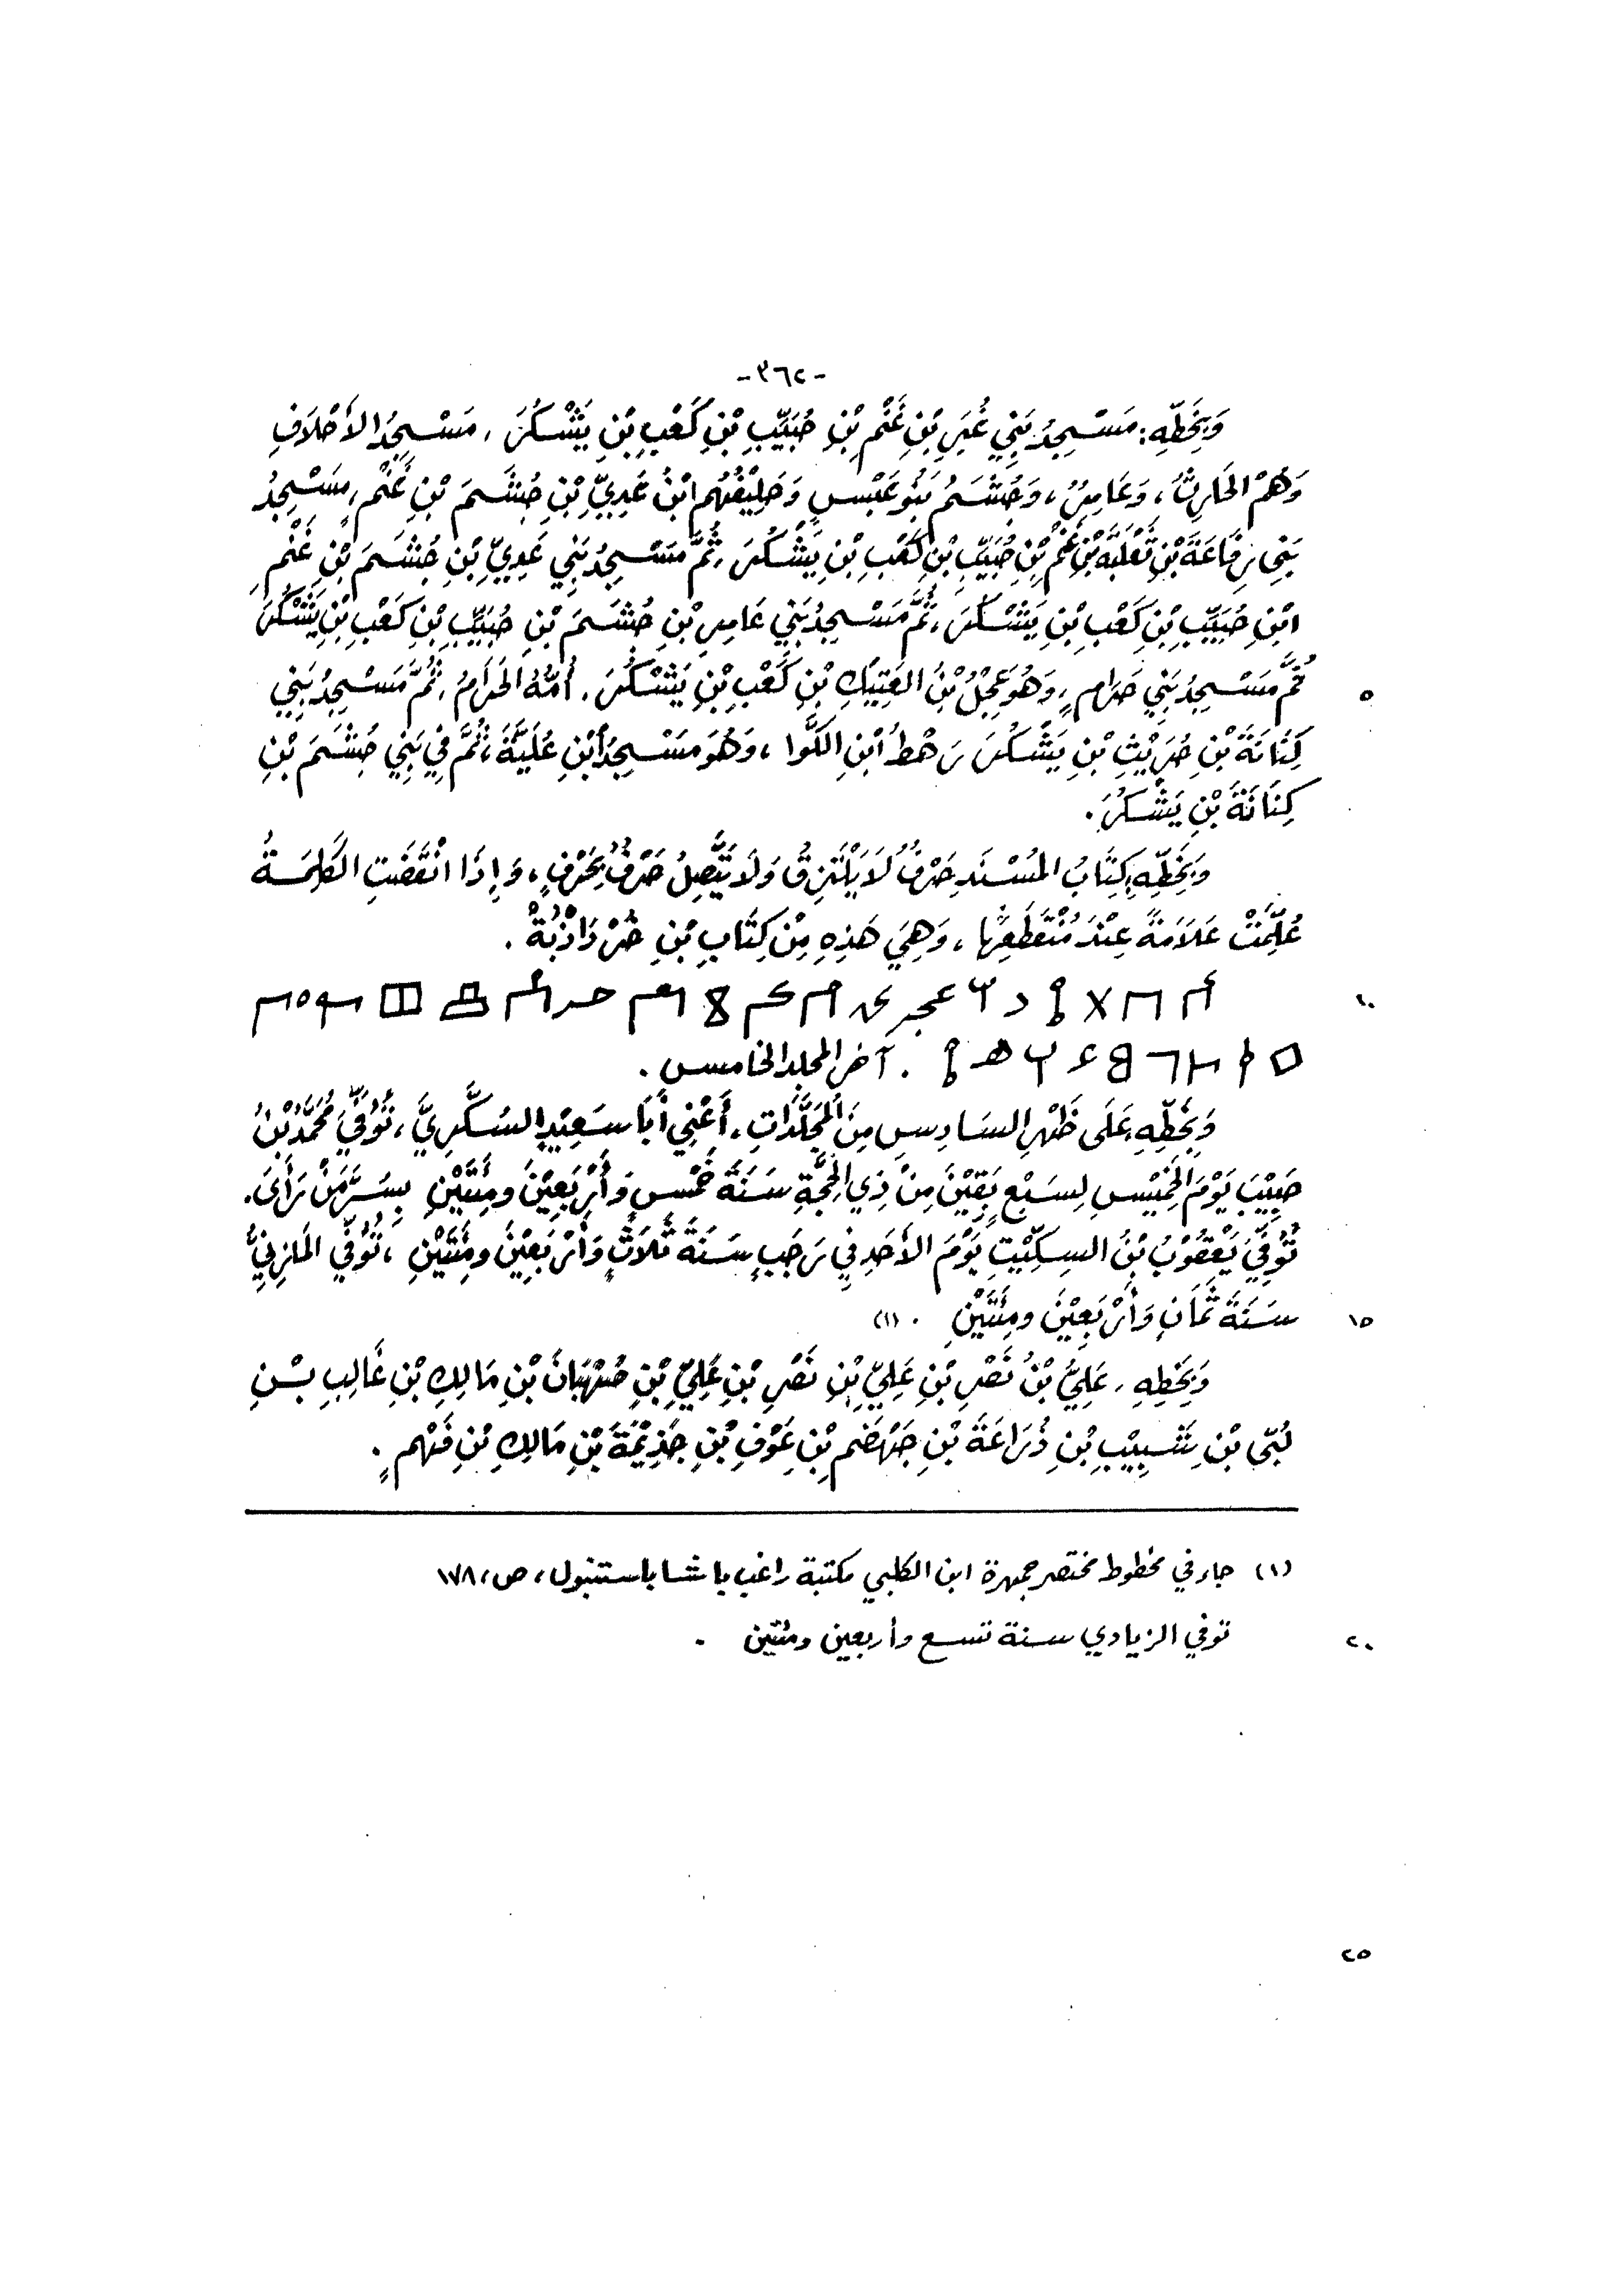 -٣٦٢-
وَبِخَطِّهِ: مَسْجِدُ بَنِي غُبَرِ بْنِ غَنْمِ بْنِ حُبَيِّبِ بْنِ كَعْبِ بْنِ يَشْكُرَ، مَسْجِدُ الأَحْلَافِ
وَهُمُ الحَارِثُ، وَعَامِرٌ، وَجُشَمُ بَنُو عَبْسٍ وَحَلِيْفُهُم ابْنُ عَدِيِّ بْنِ جُشَمَ بْنِ غَنْمٍ، مَسْجِدُ
بَنِي رِفَاعَةَ بْنِ ثَعْلَبَةَ بْنِ غَنْمِ بْنِ حُبَيِّبِ بْنِ كَعْبِ بْنِ يَشْكُرَ، ثُمَّ مَسْجِدُ بَنِي عَدِيِّ بْنِ جُشَمَ بْنِ غَنْمِ
ابْنِ حُبَيِّبِ بْنِ كَعْبِ بْنِ يَشْكُرَ، ثُمَّ مَسْجِدُ بَنِي عَامِرِ بْنِ جُشَمَ بْنِ حُبَيِّبِ بْنِ كَعْبِ بْنِ يَشْكُرَ
ثُمَّ مَسْجِدُ بَنِي حَرَامٍ، وَهُوَ عِجْلُ بْنُ العَتِيْكِ بْنِ كَعْبِ بْنِ يَشْكُرَ. أُمُّهُ الحَرَامُ، ثُمَّ مَسْجِدُ بَنِي
٥
كِنَانَةَ بْنِ حُرَيْثِ بْنِ يَشْكُرَ رَهْطُ ابْنِ الكَوَّا، وَهُوَ مَسْجِدُ ابْنِ عُلَيَّةَ، ثُمَّ فِي بَنِي جُشَمَ بْنِ
كِنَانَةَ بْنِ يَشْكُرَ.
وَبِخَطِّهِ، كِتَابُ المُسْنَدِ حَرْفٌ لَا يَلْتَزِقُ وَلَا يَتَّصِلُ حَرْفٌ بِحَرْفٍ، وَإِذَا انْقَضَتِ الكَلِمَةُ
عُلِّمَتْ عَلَامَةً عِنْدَ مُنْقَطَعِهَا، وَهِيَ هَذِهِ مِنْ كِتَابِ بْنِ خُرْدَاذْبَةْ.
١٠
. آخر المجلد الخامس.
وَبِخَطِّهِ، عَلَى ظَهْرِ السَادِسِ مِنَ المُجَلَّدَاتِ، أَعْنِي أَبَا سَعِيْدٍ السُكَّرِيَّ، تُوُفِّيَ مُحَمَّدُ بْنُ
حَبِيْبَ يَوْمَ الخَمِيْسِ لِسَبْعٍ بَقِيْنَ مِنْ ذِي الحِجَّةِ سَنَةَ خَمْسٍ وَأَرْبَعِيْنَ ومِئَتَيْنِ بِسُرَّ مَنْ رَأَىَ.
تُوُفِّيَ يَعْقُوْبُ بْنُ السِكِّيْتِ يَوْمَ الأَحَدِ فِي رَجَبٍ سَنَةَ ثَلَاثٍ وَأَرْبَعِيْنَ ومِئَتَيْنِ، تُوُفِّيَ المَازِنِيُّ
سَنَةَ ثَمَانٍ وَأَرْبَعِيْنَ ومِئَتَيْنِ. (١)
١٥
وَبِخَطِهِ، عَلِيُّ بْنُ نَصْرِ بْنِ عَلِيِّ بْنِ نَصْرِ بْنِ عَلِيِّ بْنِ صُهْبَانَ بْنِ مَالِكِ بْنِ غَالِبِ بْنِ
لُبَّى بْنِ شَبِيْبِ بْنِ ذُرَاعَةَ بْنِ جَهْضَمِ بْنِ عَوْفِ بْنِ جَذِيْمَةَ بْنِ مَالِكِ بْنِ فَهْمٍ.
(١) جاء في مخطوط مختصر جمهرة ابن الكلبي مكتبة راغب باشا باستنبول، ص، ١٧٨
توفي الزيادي سنة تسع وأربعين ومئتين.
٢٠
٢٥